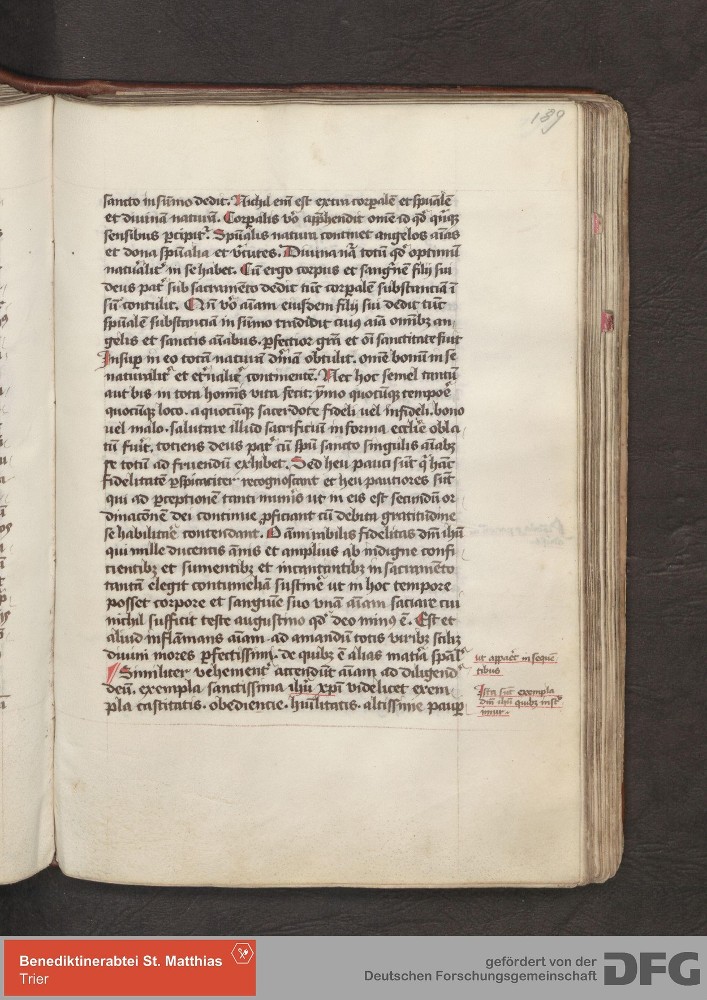 189
sancto in su̅mo dedit. Nichil eni̅ est extra corp̱ale̅ et sp̅uale̅
et diuina̅ natura̅. Corp̱alis v̊o app̱hendit om̅e id qd̕ qi̅nq̕
sensibus p̱cipit᷑. Sp̅ualis natura continet angelos ai̅as
et dona sp̅ualia et v̕tutes. Diuina na̅ totu̅ qd̕ optimu̅
natu᷑alit᷑ in se habet. Cu̅ ergo corpus et sang᷑ne̅ filij sui
deus pat᷑ sub sacrame̅to dedit tu̅c corp̱ale̅ substancia̅ i̅
su̅ contulit. Qn̅ v̊o ai̅am eiusdem filij sui dedit tu̅c
sp̅uale̅ substancia̅ in su̅mo tradidit cuiꝰ ai̅a omi̅bꝫ an
gelis et sanctis ai̅abus. p̱fectior gr̅a et oi̅ sanctitate fuit
Insup̱ in eo tota̅ natura̅ di̅na̅ obtulit. om̅e bonu̅ in se
naturalit᷑ et et᷑nalit᷑ contine̅te̅. Nec hoc semel tantu̅
aut bis in tota homi̅s vita fecit. ymo quociu̅qꝫ tempo᷑e
quocu̅qꝫ loco. a quocu̅qꝫ sacerdote fideli uel infideli. bono
uel malo. salutare illud sacrificiu̅ in forma eccl̅ie obla
tu̅ fui᷑t. totiens deus pat᷑ cu̅ sp̅u sancto singulis ai̅abꝫ
se totu̅ ad fruendu̅ exhibet. Sed heu pauci su̅t qi᷑ ha̅c
fidelitate̅ p̱spicaciter recognoscant et heu pautiores su̅t
qui ad p̱ceptione̅ tanti mun᷑is ut in eis est secundu̅ or
dinac̅one̅ dei continue ꝓficiant cu̅ debita gratitudine
se habilita᷑e contendant. O ammirabilis fidelitas dn̅i ih̅u
qui mille ducentis a̅nis et amplius ab indigne confi
cientibꝫ et sumentibꝫ et incantantibꝫ in sacrame̅to
tanta̅ elegit contumelia̅ sustine᷑ ut in hoc tempore
posset corpore et sangui̅e suo vna̅ ai̅am saciare cui
nichil sufficit teste augustino qd̕ deo minꝰ e̅. Est et
aliud infla̅mans ai̅am. ad amandu̅ totis viribꝫ scilicꝫ
diuini mores p̱fectissimi. de quibꝫ e̅ alias mat᷑ia sp̅al᷑
Similiter vehement᷑ accendu̅t ai̅am ad diligend᷑
deu̅. exempla sanctissima ih̅u xp̅i videlicet exem
pla castitatis. obediencie. hu̅ilitatis. altissime paup̱
ut appa᷑et in seque̅
tibus
Ista su̅t exempla
dn̅i ih̅u quibꝫ inst᷑
imur.
Benediktinerabtei St. Matthias
Trier
gefördert von der
Deutschen Forschungsgemeinschaft
DFG